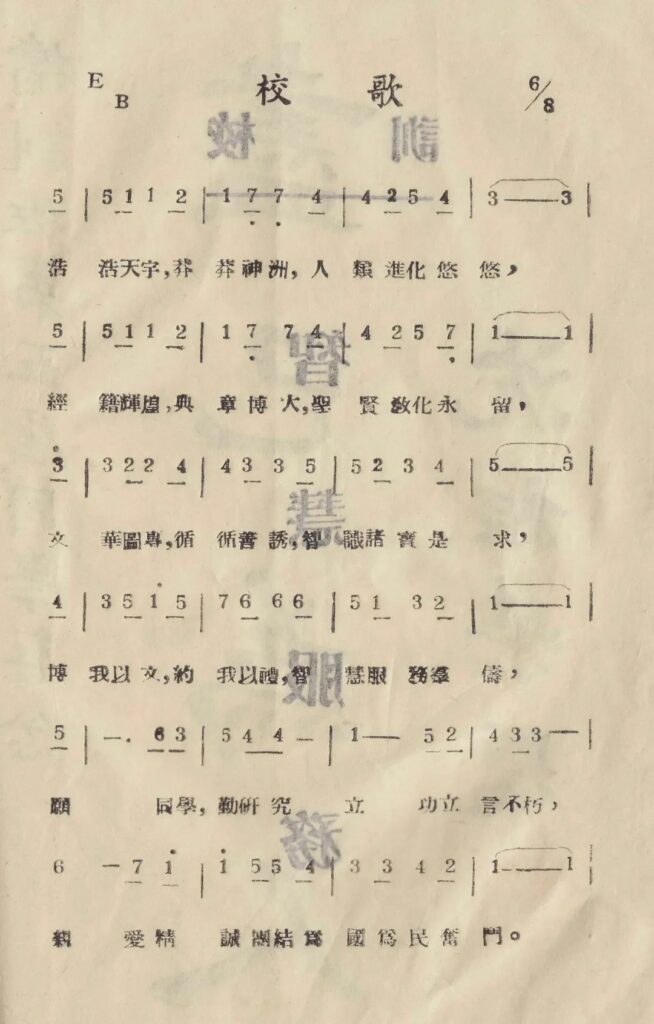 E B 校歌 6/8
5 | 5 1 1 2 | 1 7 7 4 | 4 2 5 4 | 3——3 |
浩 浩天宇,莽 莽神洲,人 類進化悠 悠,
5 | 5 1 1 2 | 1 7 7 4 | 4 2 5 7 | 1——1 |
經 籍輝煌,典 章博大,聖 賢教化永 留,
3 | 3 2 2 4 | 4 3 3 5 | 5 2 3 4 | 5——5 |
文 華圖專,循 循善誘,智 識諸寶是 求,
4 | 3 5 1 5 | 7 6 6 6 | 5 1 3 2 | 1——1 |
博 我以文,約 我以禮,智 慧服務羣 儔,
5 | —. 6 3 | 5 4 4 — | 1— 5 2 | 4 3 3 — |
願 同學,勤研究 立 功立言不朽,
6 — 7 1 | 1 5 5 4 | 3 3 4 2 | 1——1 |
親 愛精 誠團結爲 國爲民奮 鬥。
校訓
智
慧
服
務